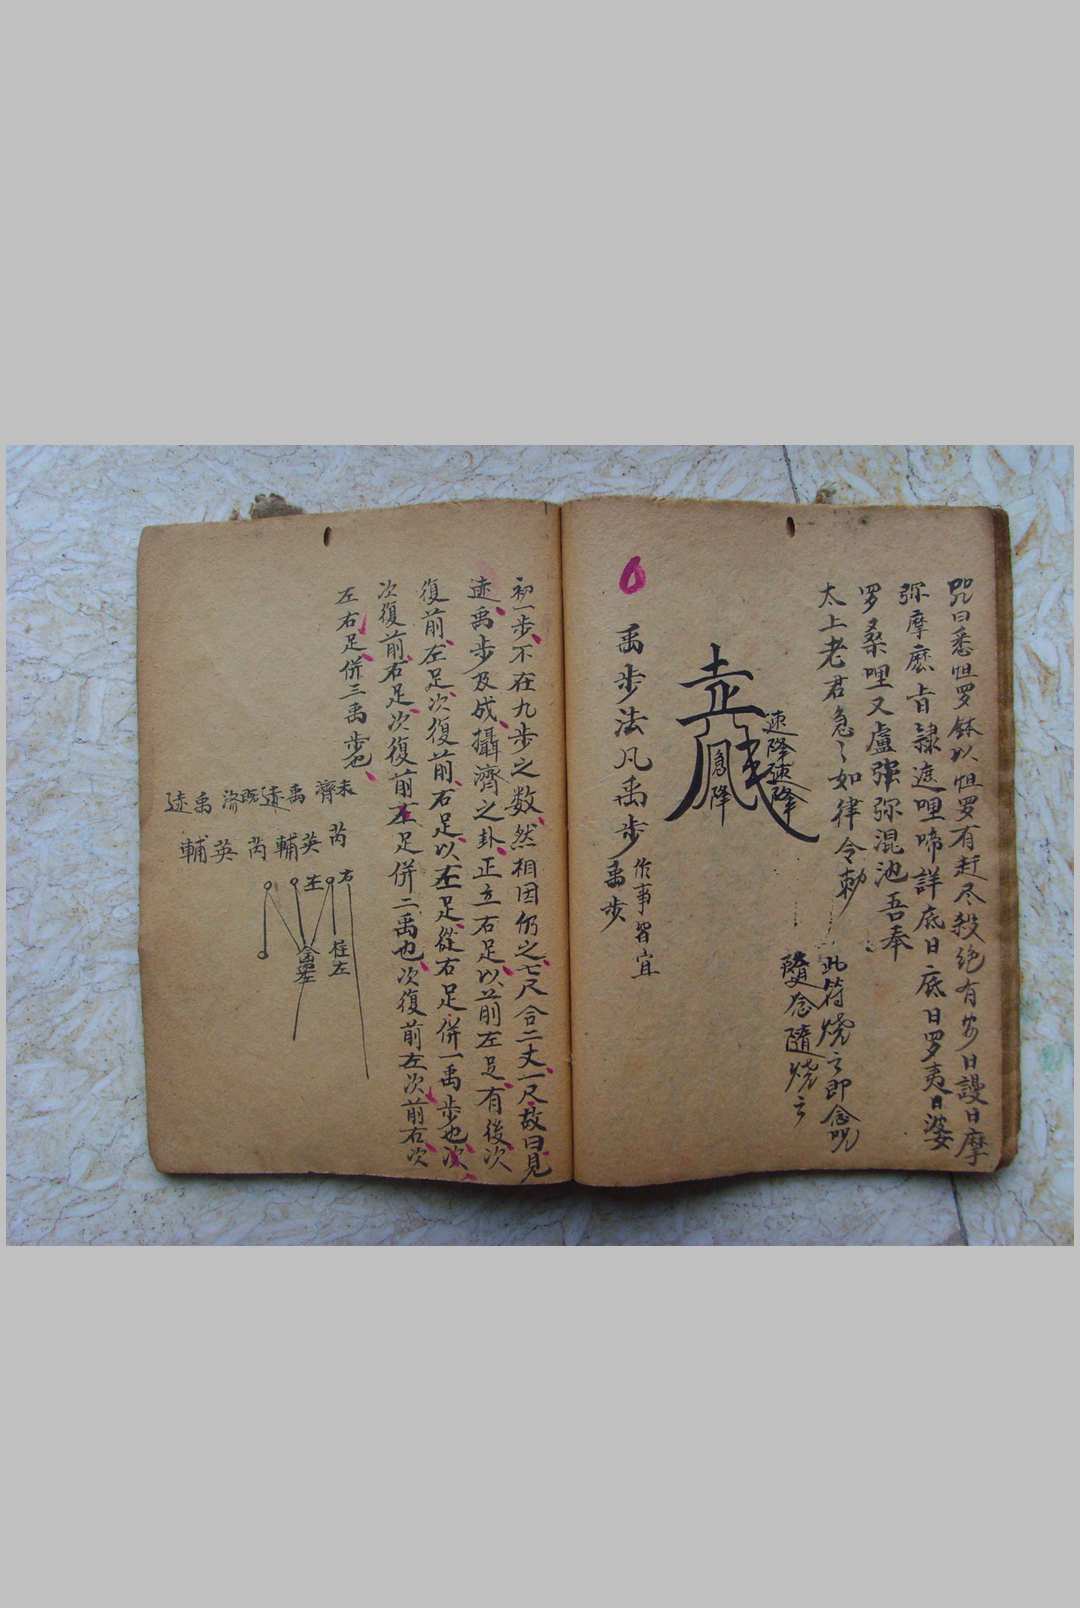 咒曰悉怛罗鉢以怛罗有赶尽殺绝有安日謾日摩
弥摩麽旨隷遮哩啼詳底日底日罗夷日婆
罗桑哩又盧强弥混池吾奉
太上老君急々如律令勅
此符燒之即念咒
念隨燒之
速降速降
急降
禹步法凡禹步
作事習宜
禹步
初一步不在九步之数然相因仍之七尺合二丈一尺故曰見
迹禹步及成攝濟之卦正立右足以前左足有後次
復前左足次復前右足以左足從右足併一禹步也次
次復前右足次復前左足併二禹也次復前左次前右次
左右足併三禹步也
未濟
禹迹
既济
禹迹
芮
英輔
芮
英輔
右
左